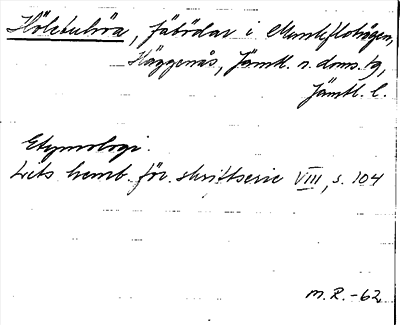 Höletulröa, fäbodar i Munkflohögen,
Häggenås, Jämtl. n. doms.,
Jämtl. l.
Etymologi.
Lits hemb. för. skriftserie VIII, s. 104
M.R.-62